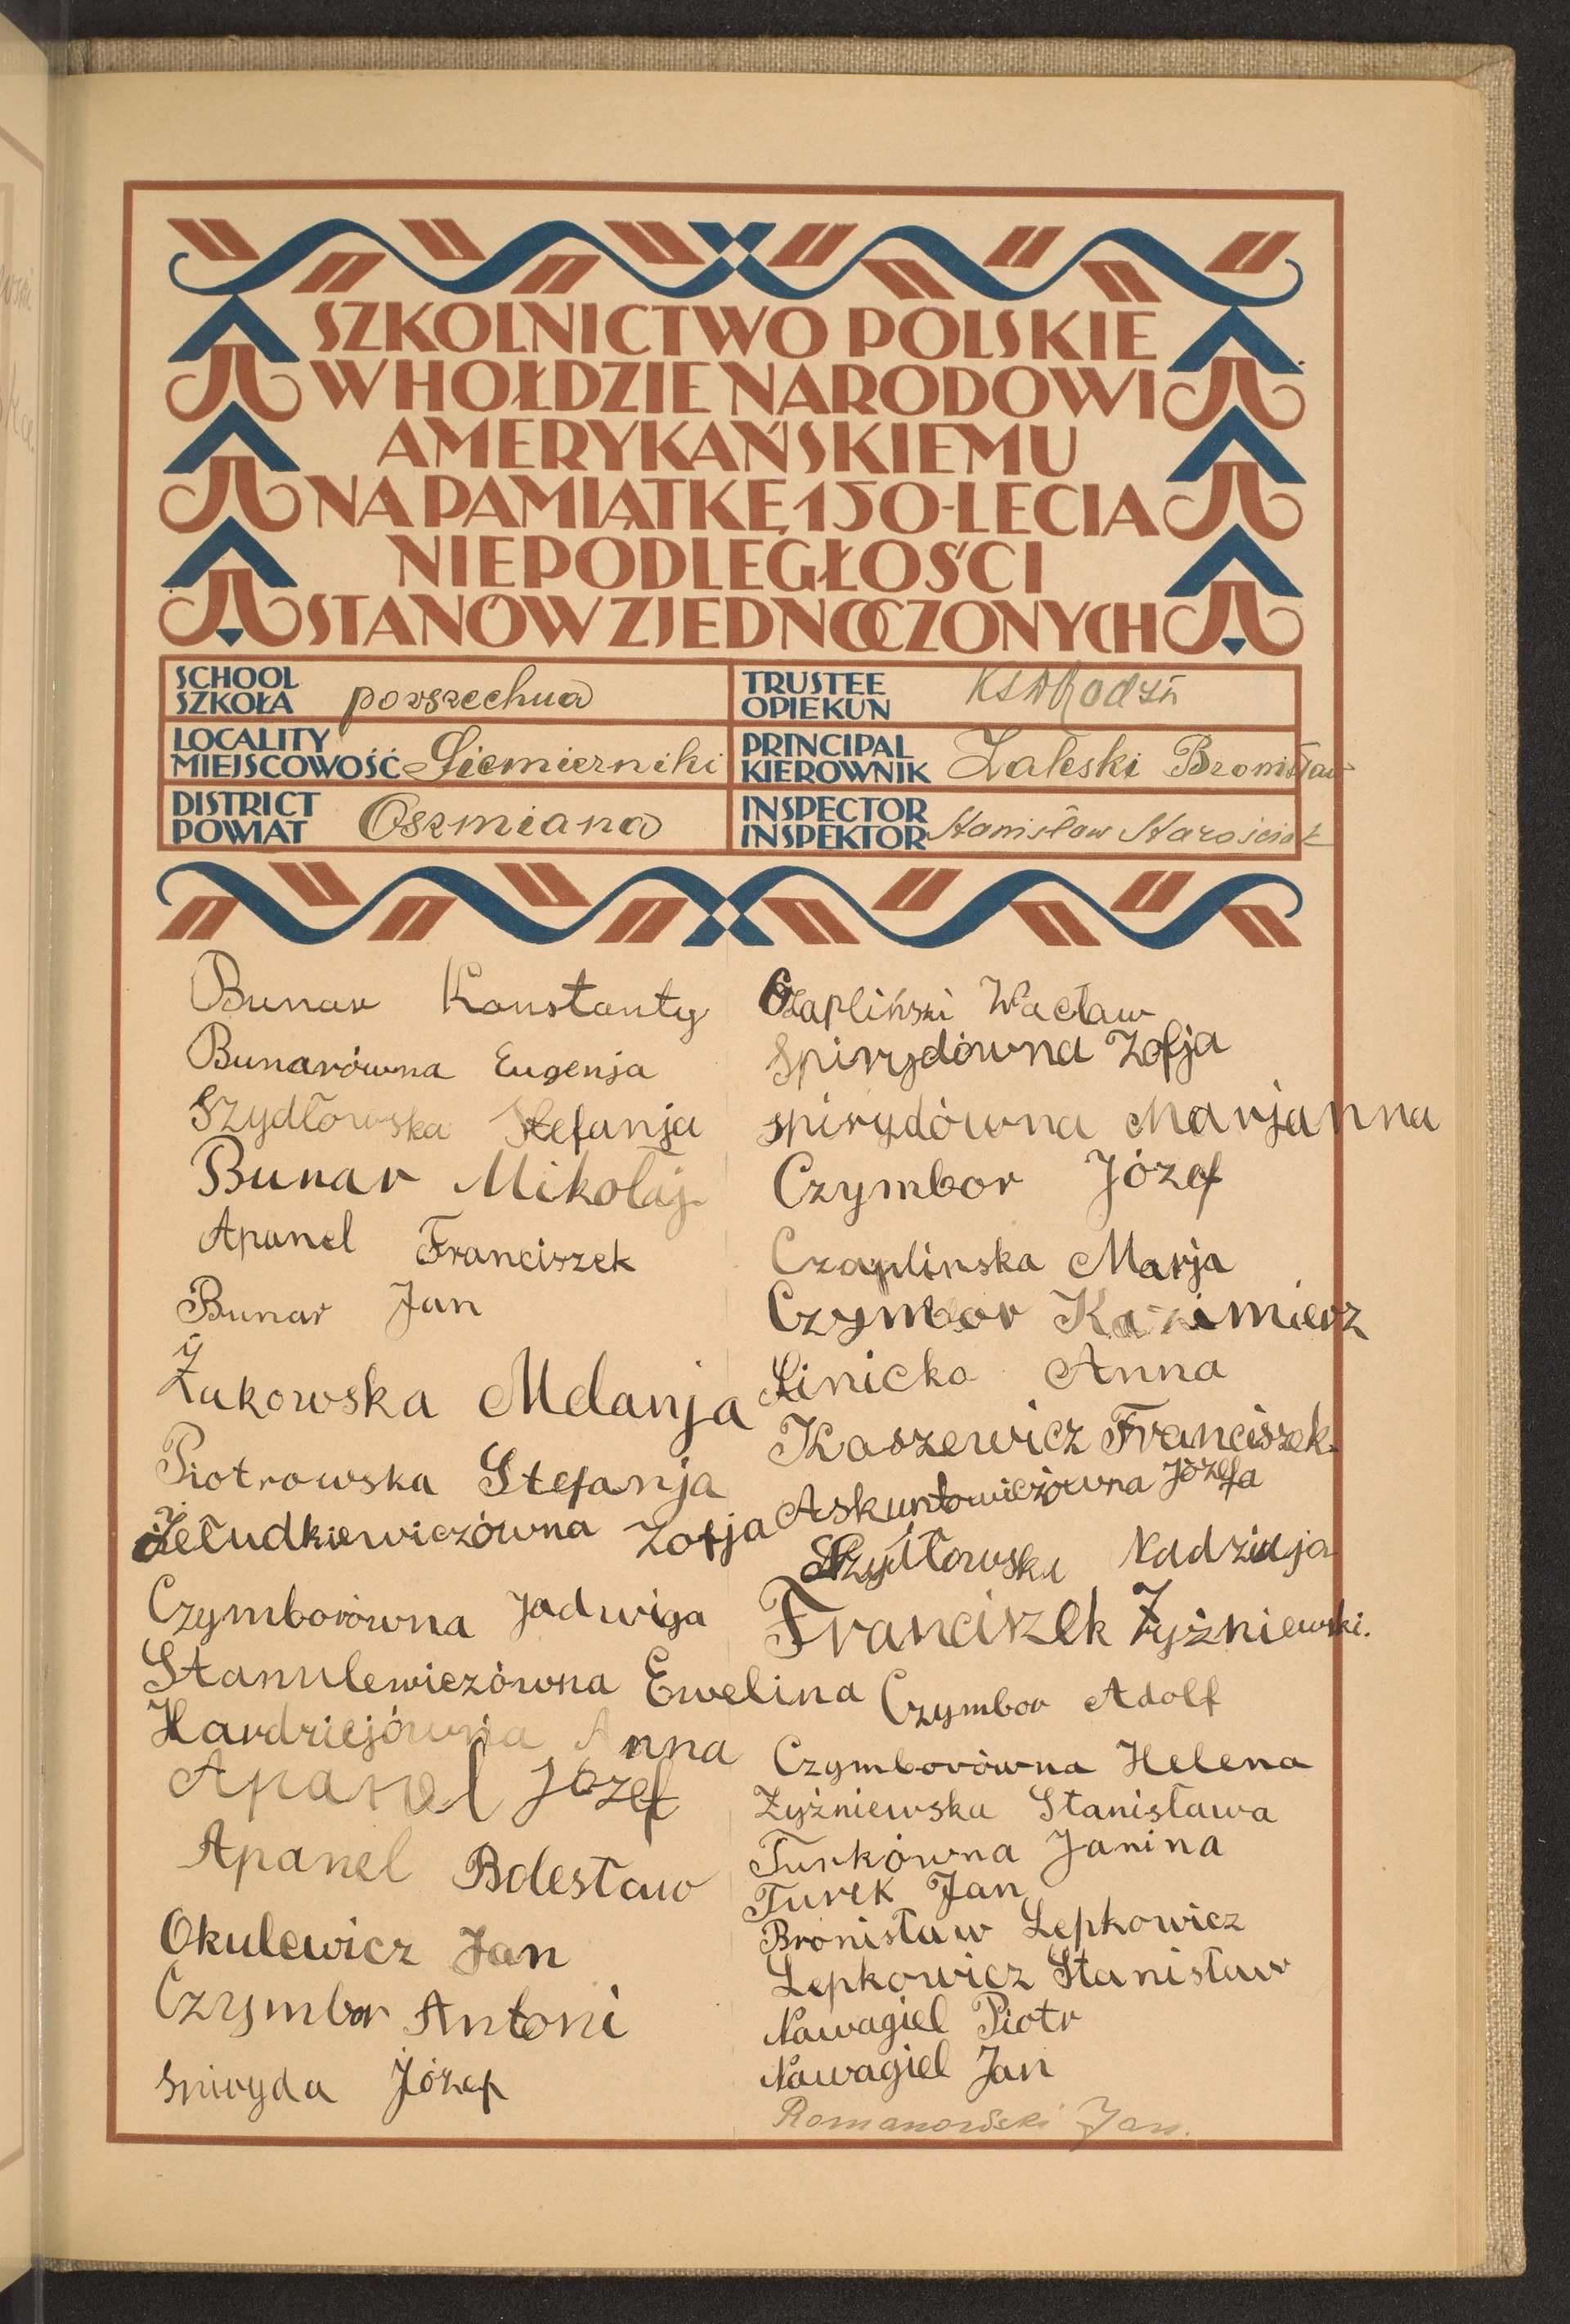 SZKOLNICTWO POLSKIE
W HOŁDZIE NARODOWI
AMERYKAŃSKIEMU
NA PAMIĄTKĘ 150-LECIA
NIEPODLEGŁOŚCI
STANÓW ZJEDNOCZONYCH
SCHOOL
SZKOŁA powszechna
TRUSTEE
OPIEKUN
LOCALITY
MIEJSCOWOŚĆ Siemierniki
PRINCIPAL
KIEROWNIK Zaleski Bronisław
DISTRICT
POWIAT Oszmiana
INSPECTOR
INSPEKTOR Stanisław Starościak
Bunar Konstanty
Bunarówna Eugenja
Szydłowska Stefanja
Bunar Mikołaj
Apanel Franciszek
Bunar Jan
Żukowska Melanja
Piotrowska Stefanja
Żełudkiewiczówna Zofja
Czymborówna Jadwiga
Stanulewiczówna Ewelina
Hardziejówna Anna
Apanel Józef
Apanel Bolesław
Okulewicz Jan
Czymbor Antoni
Spiryda Józef
Czapliński Wacław
Spirydówna Zofja
spirydówna Marjanna
Czymbor Józef
Czaplinska Marja
Czymbor Kazimierz
Linicka Anna
Kaszewicz Franciszek
Askuntowiczówna Józefa
Szydłowska Nadzieja
Franciszek Żyżniewski.
Czymbor Adolf
Czymborówna Helena
Żyżniewska Stanisława
Turkówna Janina
Turek Jan
Bronisław Lepkowicz
Lepkowicz Stanisław
Nawagiel Piotr
Nawagiel Jan
Romanowski Jan.